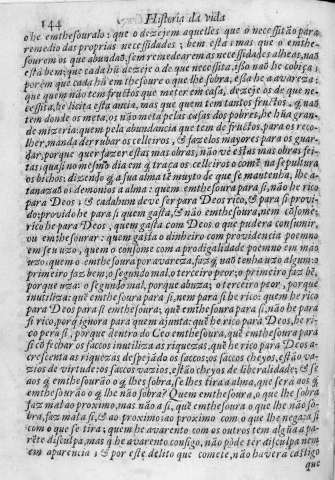 144 Historia da vida
o he emthesouralo: que o dezejem aquelles que o necessitão para
remedio das proprias necessidades; bem està; mas que o emthe-
sourem os que abundaõ, sem remedearem as necessidades alheas, naõ
està bem; que cada hũ dezeje o de que necessita, isso naõ he cobiça;
porém que cada hũ emthesoure o que lhe sobra, essa he a avareza:
que quem naõ tem fructos que meter em casa, dezeje os de que ne-
cessita, he licita esta ancia, mas que quem tem tantos fructos, q̃ naõ
tem donde os meta, os naõ meta pelas casas dos pobres, he hũa gran-
de mizeria: quem pela abundancia que tem de fructos, para os reco-
lher, manda derrubar os celleiros, & fazelos mayores para os guar-
dar, porque quer fazer estas mas obras, não vè estas mas obras fei-
tas; quasi no mesmo dia em q̃ traça os celleiros o comẽ na sepultura
os bichos: dizendo q̃ a sua alma tè muyto de que se mantenha, lhe a-
tanazaõ os demonios a alma: quem emthesoura para si, não he rico
para Deos; & cada hum deve ser para Deos rico, & para si provi-
do; provido he para si quem gasta, & não emthesoura, nem cõsome;
rico he para Deos, quem gasta com Deos o que pudera consumir,
ou emthesourar: quem gasta o dinheiro com providencia poemno
em seu uzo, quem o consome com a prodigalidade poemno em mào
uzo: quem o emthesoura por avareza, faz q̃ naõ tenha uzo algum: o
primeiro faz bem; o segundo mal, o terceiro peor; o primeiro faz bẽ,
porque uza: o segundo mal, porque abuza; o terceiro peor, porque
inutiliza: què emthesoura para si, nem para si he rico: quem he rico
para Deos para si emthesoura; què emthesoura para si, não he para
si rico, porq̃ ignora para quem ajunta: què he rico para Deos, he ri-
co pera si, porque dentro do Ceo emthesoura, què emthesoura para
si cõ fechar os saccos inutiliza as riquezas, què he rico para Deos a-
crescenta as riquezas despejãdo os saccos; os saccos cheyos, estão va-
zios de virtude: os saccos vazios, estão cheyos de liberalidade; & se
aos q̃ emthesourão o q̃ lhes sobra, se lhes tira a alma, que sera aos q̃
emthesouraõ o q̃ lhe não sobra? Quem emthesoura, o que lhe sobra
faz mal ao proximo, mas não a si, què emthesoura o que lhe não so-
bra, faz mal a si, & ao proximo: ao proximo com o que lhe nega, a si
com o que se tira; quem he avarento com os outros tem algũa a pa-
rẽte disculpa, mas q̃ he avarento consigo, não pòde tèr disculpa nem
em aparencia; & por este delito que comete, não havera castigo
que